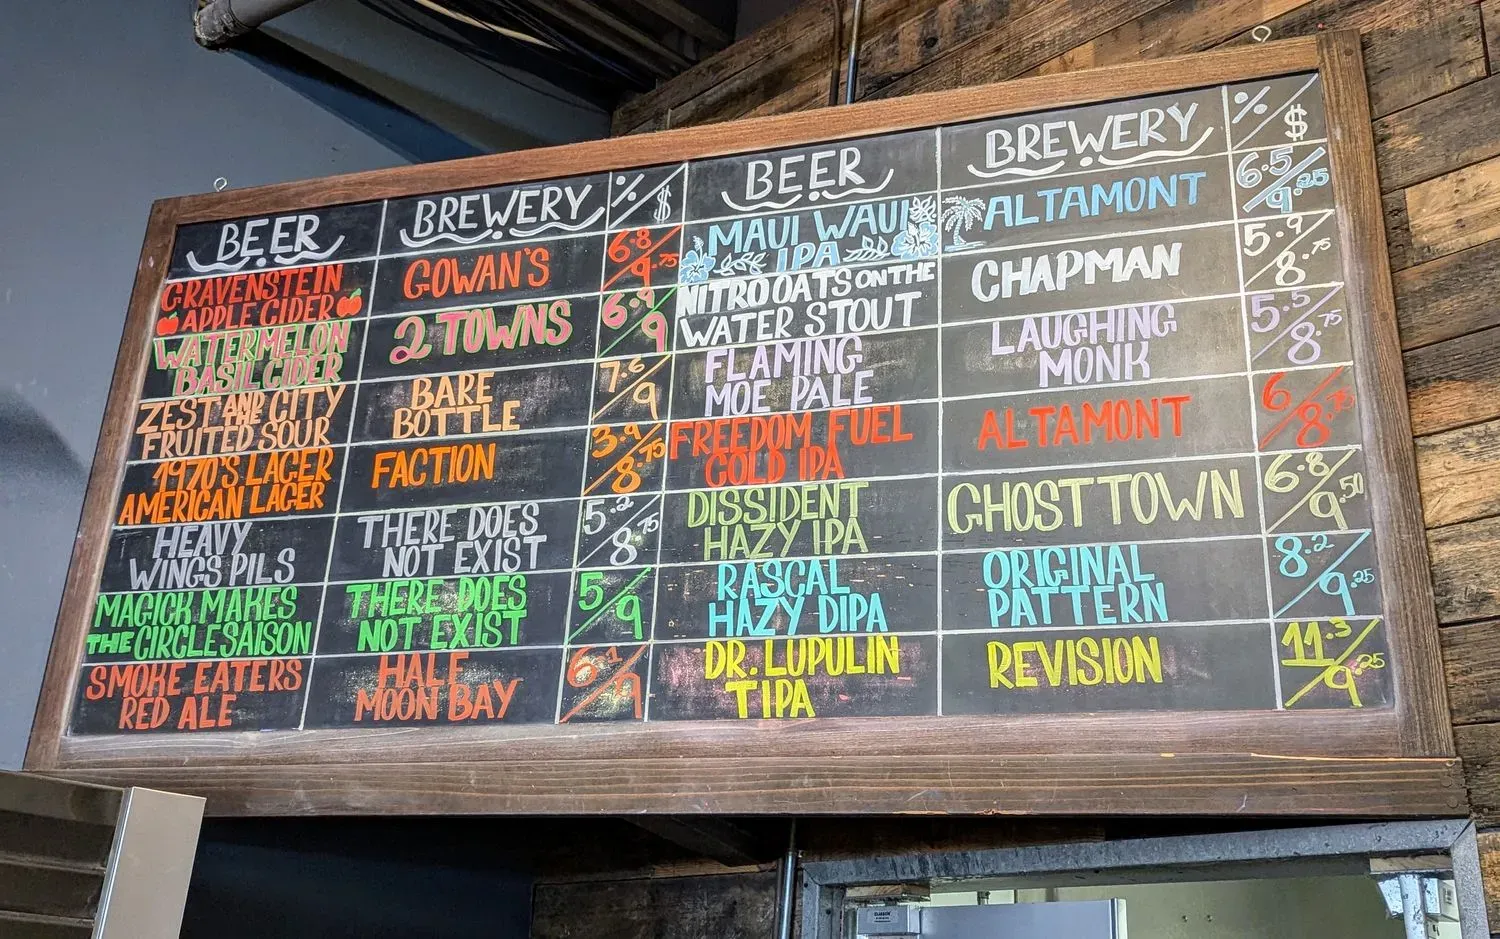 BEER BREWERY %/$
GRAVENSTEIN
APPLE CIDER
GOWAN'S
6.8/9.75
WATERMELON
BASIL CIDER
2 TOWNS
6.9/9
ZEST AND THE CITY
FRUITED SOUR
BARE
BOTTLE
7.6/9
1970'S LAGER
AMERICAN LAGER
FACTION
3.9/8.75
HEAVY
WINGS PILS
THERE DOES
NOT EXIST
5.2/8.75
MAGICK MAKES
THE CIRCLE SAISON
THERE DOES
NOT EXIST
5/9
SMOKE EATERS
RED ALE
HALF
MOON BAY
BEER BREWERY %/$
MAUI WAUI
IPA
ALTAMONT
6.5/9.25
NITRO OATS ON THE
WATER STOUT
CHAPMAN
5.9/8.75
FLAMING
MOE PALE
LAUGHING
MONK
5.5/8.75
FREEDOM FUEL
COLD IPA
ALTAMONT
6/8.75
DISSIDENT
HAZY IPA
GHOST TOWN
6.8/9.50
RASCAL
HAZY DIPA
ORIGINAL
PATTERN
8.2/9.25
DR. LUPULIN
TIPA
REVISION
11.3/9.25